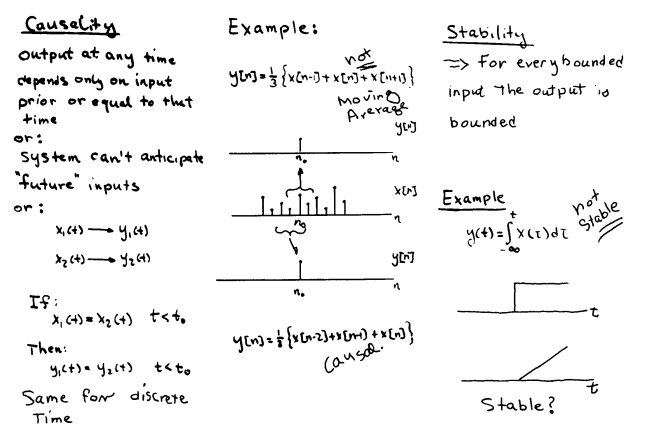 Causality
Output at any time
depends only on input
prior or equal to that
time
or:
System can't anticipate
"future" inputs
or:
x₁(t) → y₁(t)
x₂(t) → y₂(t)
If:
x₁(t) = x₂(t) t < t₀
Then:
y₁(t) = y₂(t) t < t₀
Same for discrete
Time
Example:
not
y[n] = 1/3 {x[n-1] + x[n] + x[n+1]}
Moving
Average
y[n]
n₀ n
x[n]
n₀ n
y[n]
n₀ n
y[n] = 1/3 {x[n-2] + x[n-1] + x[n]}
Causal.
Stability
⇒ For every bounded
input the output is
bounded
Example
not
stable
y(t) = ∫_{-∞}^{t} x(τ) dτ
t
t
Stable?